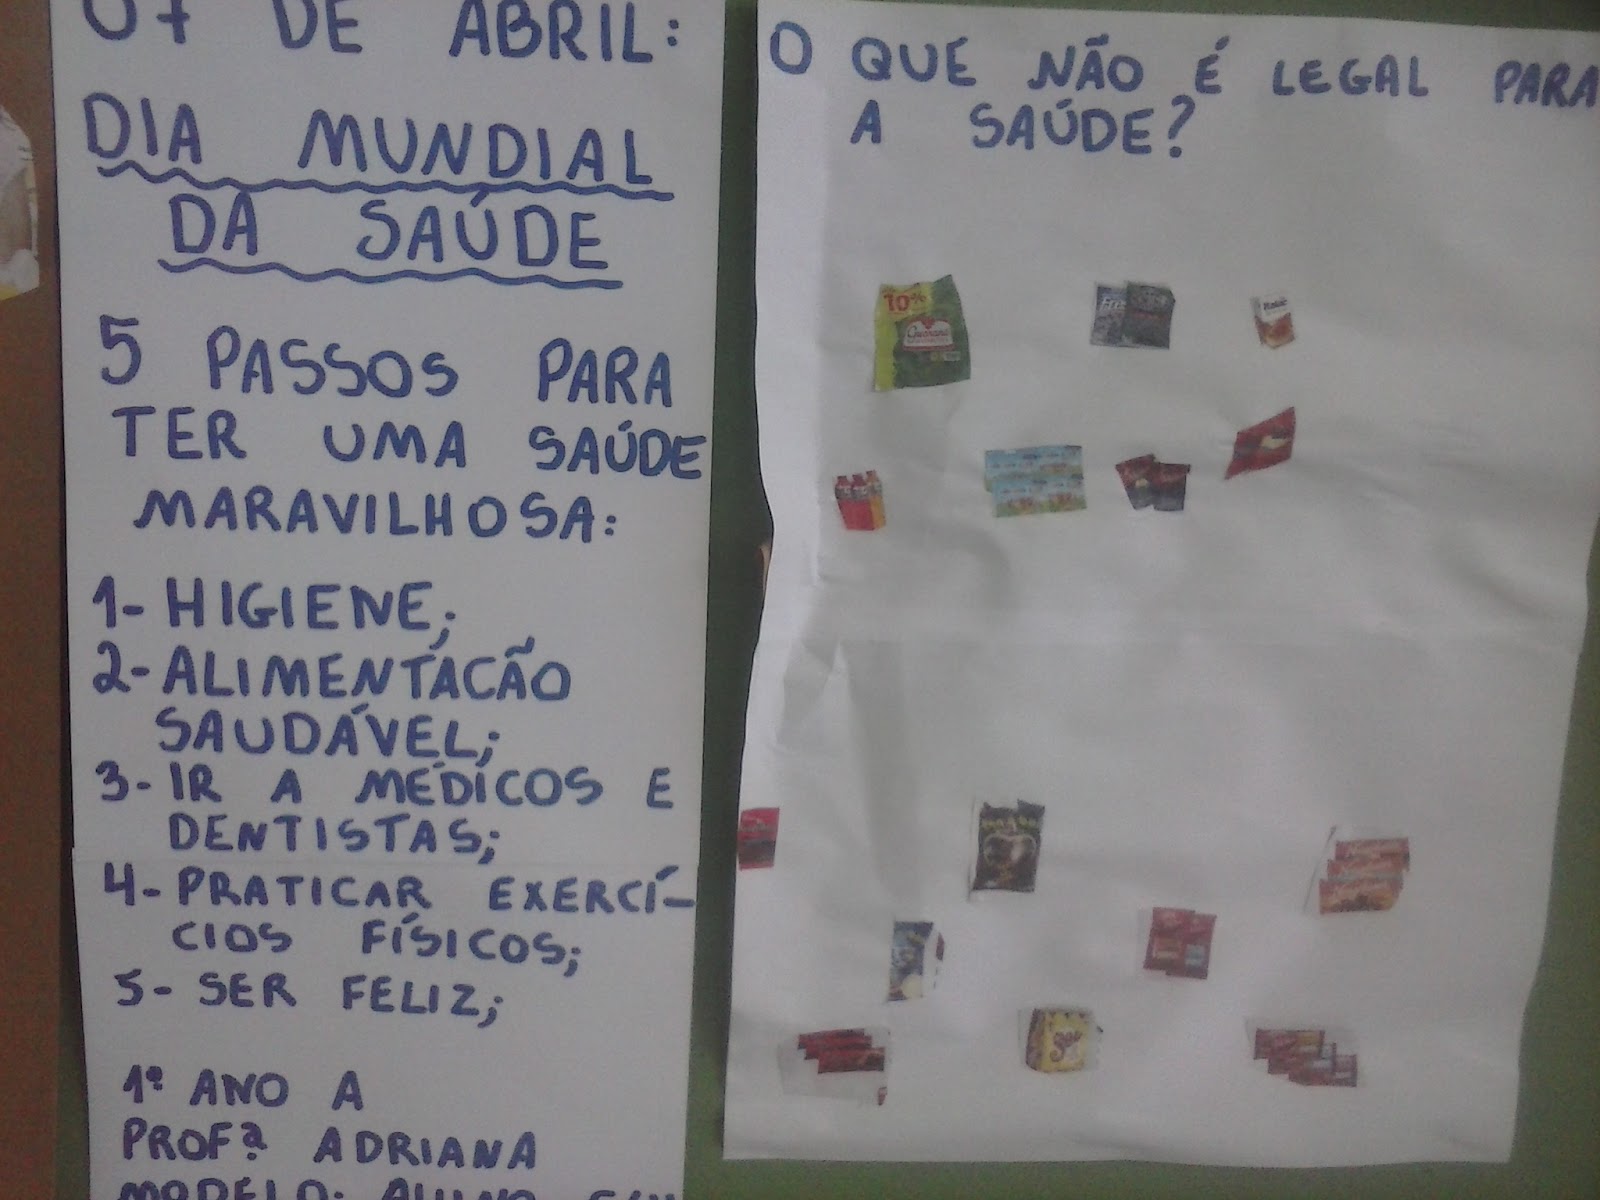 07 DE ABRIL:
DIA MUNDIAL
DA SAÚDE
5 PASSOS PARA
TER UMA SAÚDE
MARAVILHOSA:
1- HIGIENE;
2- ALIMENTACÃO
SAUDÁVEL;
3- IR A MÉDICOS E
DENTISTAS;
4- PRATICAR EXERCÍ-
CIOS FÍSICOS;
5- SER FELIZ;
1º ANO A
PROFª ADRIANA
MODELO: ALUNO
O QUE NÃO É LEGAL PARA
A SAÚDE?
10%
Guaraná